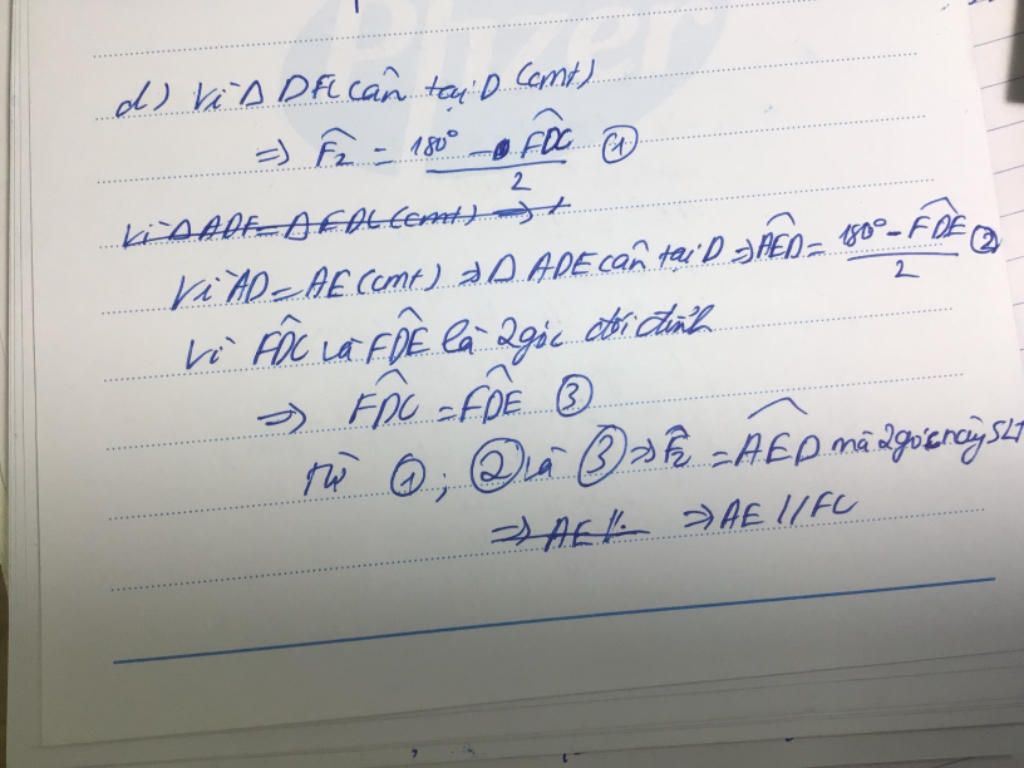 Pfizer
d) Vì Δ DFC cân tại D (cmt)
=> F̂₂ = (180° - FDC^)/2 ①
Vì Δ ADF = Δ EDC (cmt) =>
Vì AD = AE (cmt) => Δ ADE cân tại D => AED^ = (180° - FDE^)/2 ②
Vì FDC^ và FDE^ là 2 góc đối đỉnh
=> FDC^ = FDE^ ③
Từ ①; ② và ③ => F̂₂ = AED^ mà 2 góc này SLT
=> AE // => AE // FC